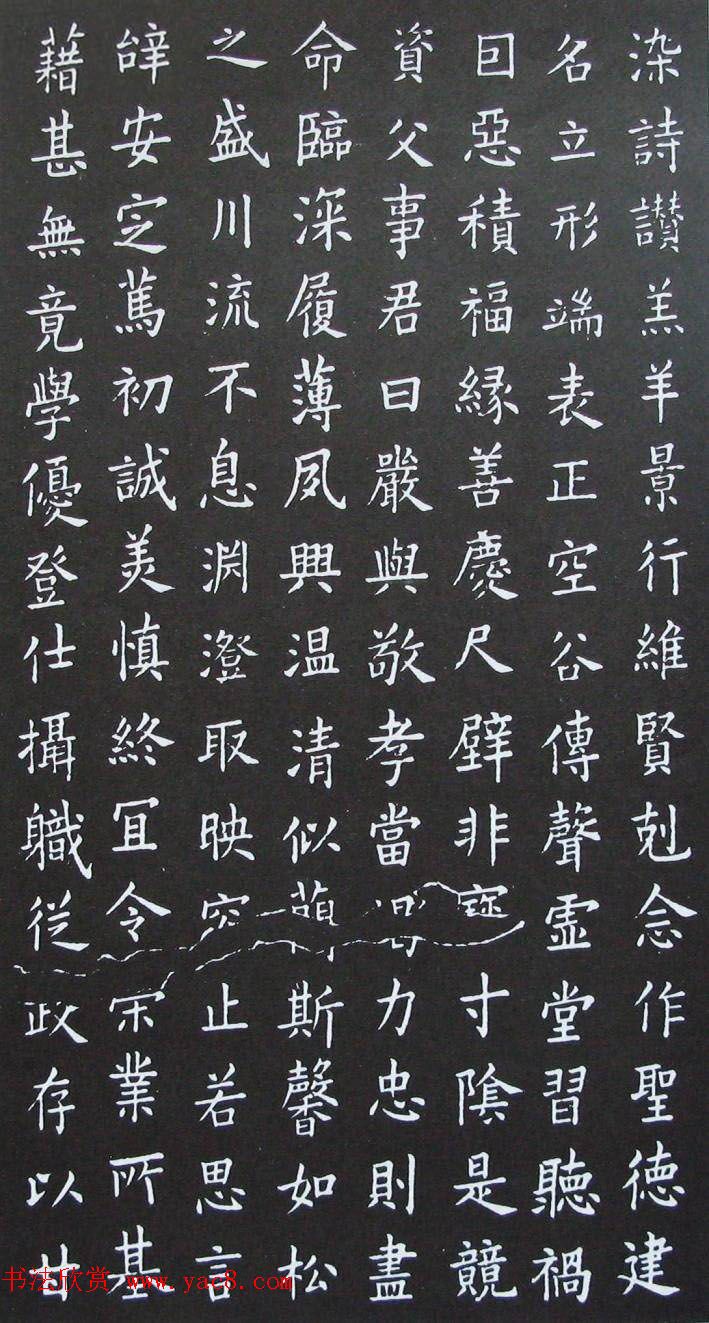 染詩讃羔羊景行維賢剋念作聖徳建
名立形端表正空谷傳聲虛堂習聽禍
因惡積福縁善慶尺璧非寳寸陰是競
資父事君曰嚴與敬孝當竭力忠則盡
命臨深履薄夙興温清似蘭斯馨如松
之盛川流不息淵澄取映容止若思言
辝安定篤初誠美慎終宜令榮業所基
藉甚無竟學優登仕攝職從政存以甘
书法欣赏 www.yac8.com